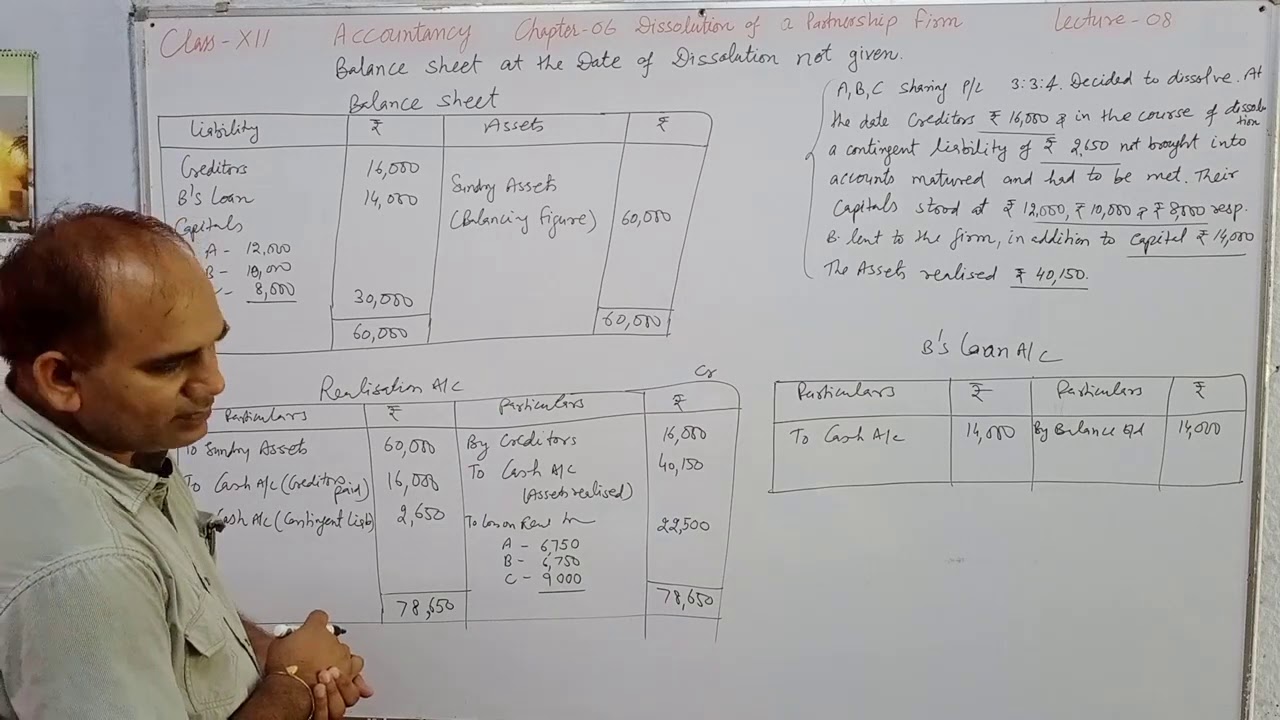 Class-XII Accountancy Chapter-06 Dissolution of a Partnership Firm Lecture-08
Balance sheet at the Date of Dissolution not given.
Balance sheet
Liability ₹ Assets ₹
Creditors 16,000
B's Loan 14,000 Sundry Assets
(Balancing figure) 60,000
Capitals
A - 12,000
B - 10,000
- 8,000 30,000
60,000 60,000
A, B, C sharing P/L 3:3:4. Decided to dissolve. At
the date Creditors ₹ 16,000 & in the course of dissolution
a contingent liability of ₹ 2,650 not brought into
accounts matured and had to be met. Their
Capitals stood at ₹ 12,000, ₹ 10,000 & ₹ 8,000 resp.
B lent to the firm, in addition to Capital ₹ 14,000
The Assets realised ₹ 40,150.
Realisation A/c Cr
Particulars ₹ Particulars ₹
To Sundry Assets 60,000 By Creditors 16,000
To Cash A/c (Creditors paid) 16,000 To Cash A/c 40,150
(Assets realised)
Cash A/c (Contingent Liab) 2,650 To Loss on 22,500
A - 6,750
B - 6,750
C - 9000
78,650 78,650
B's Loan A/c
Particulars ₹ Particulars ₹
To Cash A/c 14,000 By Balance b/d 14,000